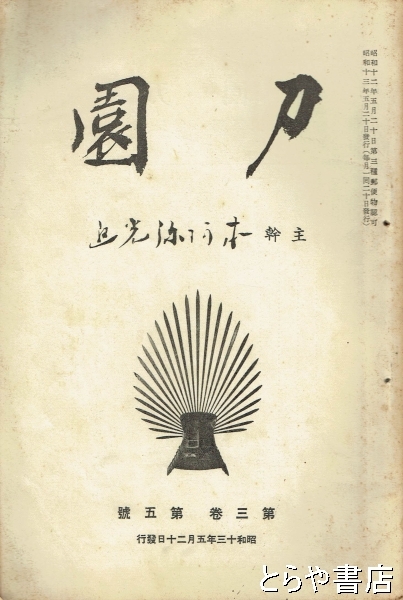 昭和十二年五月二十日第三種郵便物認可
昭和十三年五月二十日發行(每月一回二十日發行)
刀園
主幹 本阿弥光遜
第三卷 第五號
昭和十三年五月二十日發行
とらや書店